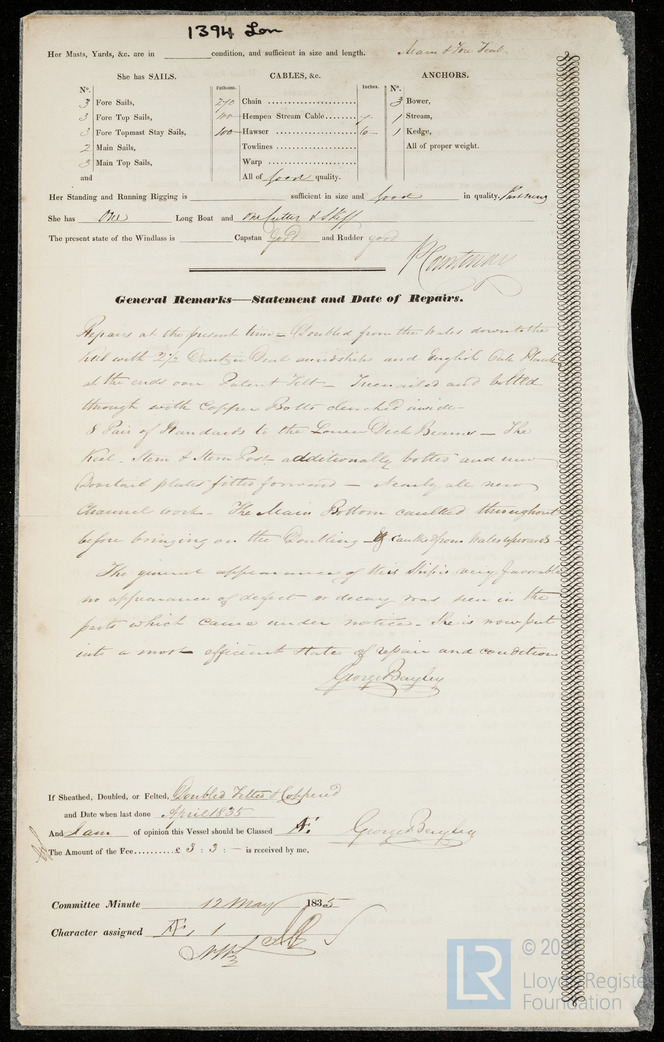 1394 Lon
Her Masts, Yards, &c. are in condition, and sufficient in size and length. Main & Fore Teak
She has SAILS.
N°.
3 Fore Sails,
3 Fore Top Sails,
3 Fore Topmast Stay Sails,
2 Main Sails,
3 Main Top Sails,
and
CABLES, &c.
Fathoms. Inches.
Chain
100 Hempen Stream Cable
100 Hawser 6
Towlines
Warp
All of good quality.
ANCHORS.
N°.
3 Bower,
1 Stream,
1 Kedge,
All of proper weight.
Her Standing and Running Rigging is sufficient in size and good in quality.
She has One Long Boat and One Cutter & Skiff
The present state of the Windlass is Capstan Good and Rudder good
General Remarks—Statement and Date of Repairs.
Repairs at the present time - Doubled from the Wales down to the
keel with 2½ Dantzic Deal amidships and English Oak Plank
at the ends over Patent Felt - Treenailed and bolted
through with Copper Bolts clenched inside -
8 Pair of Standards to the Lower Deck Beams - The
Keel, Stem & Stern Post additionally bolted and new
Dovetail plates fitted forward - Nearly all new
Channel work - The Main Bottom caulked throughout
before bringing on the Doubling - & caulked from Wales upwards -
The general appearance of this Ship is very favorable
no appearance of defect or decay was seen in the
parts which came under notice - She is now put
into a most efficient state of repair and condition
George Bayley
If Sheathed, Doubled, or Felted, Doubled Felted & Coppered
and Date when last done April 1835
And I am of opinion this Vessel should be Classed George Bayley
The Amount of the Fee £ 3 : 3 : - is received by me,
Committee Minute 12 May 1835
Character assigned Æ 1
LR
© 20
Lloyd's Register
Foundation